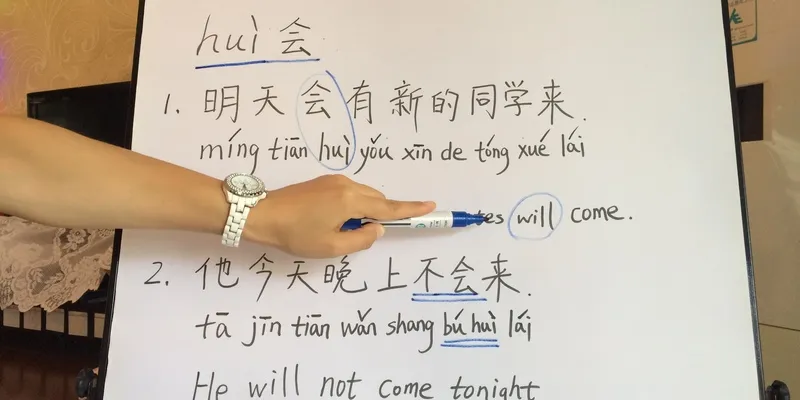 huì 会
1. 明天会有新的同学来.
míng tiān huì yǒu xīn de tóng xué lái
will come.
2. 他今天晚上不会来.
tā jīn tiān wǎn shang bú huì lái
He will not come tonight